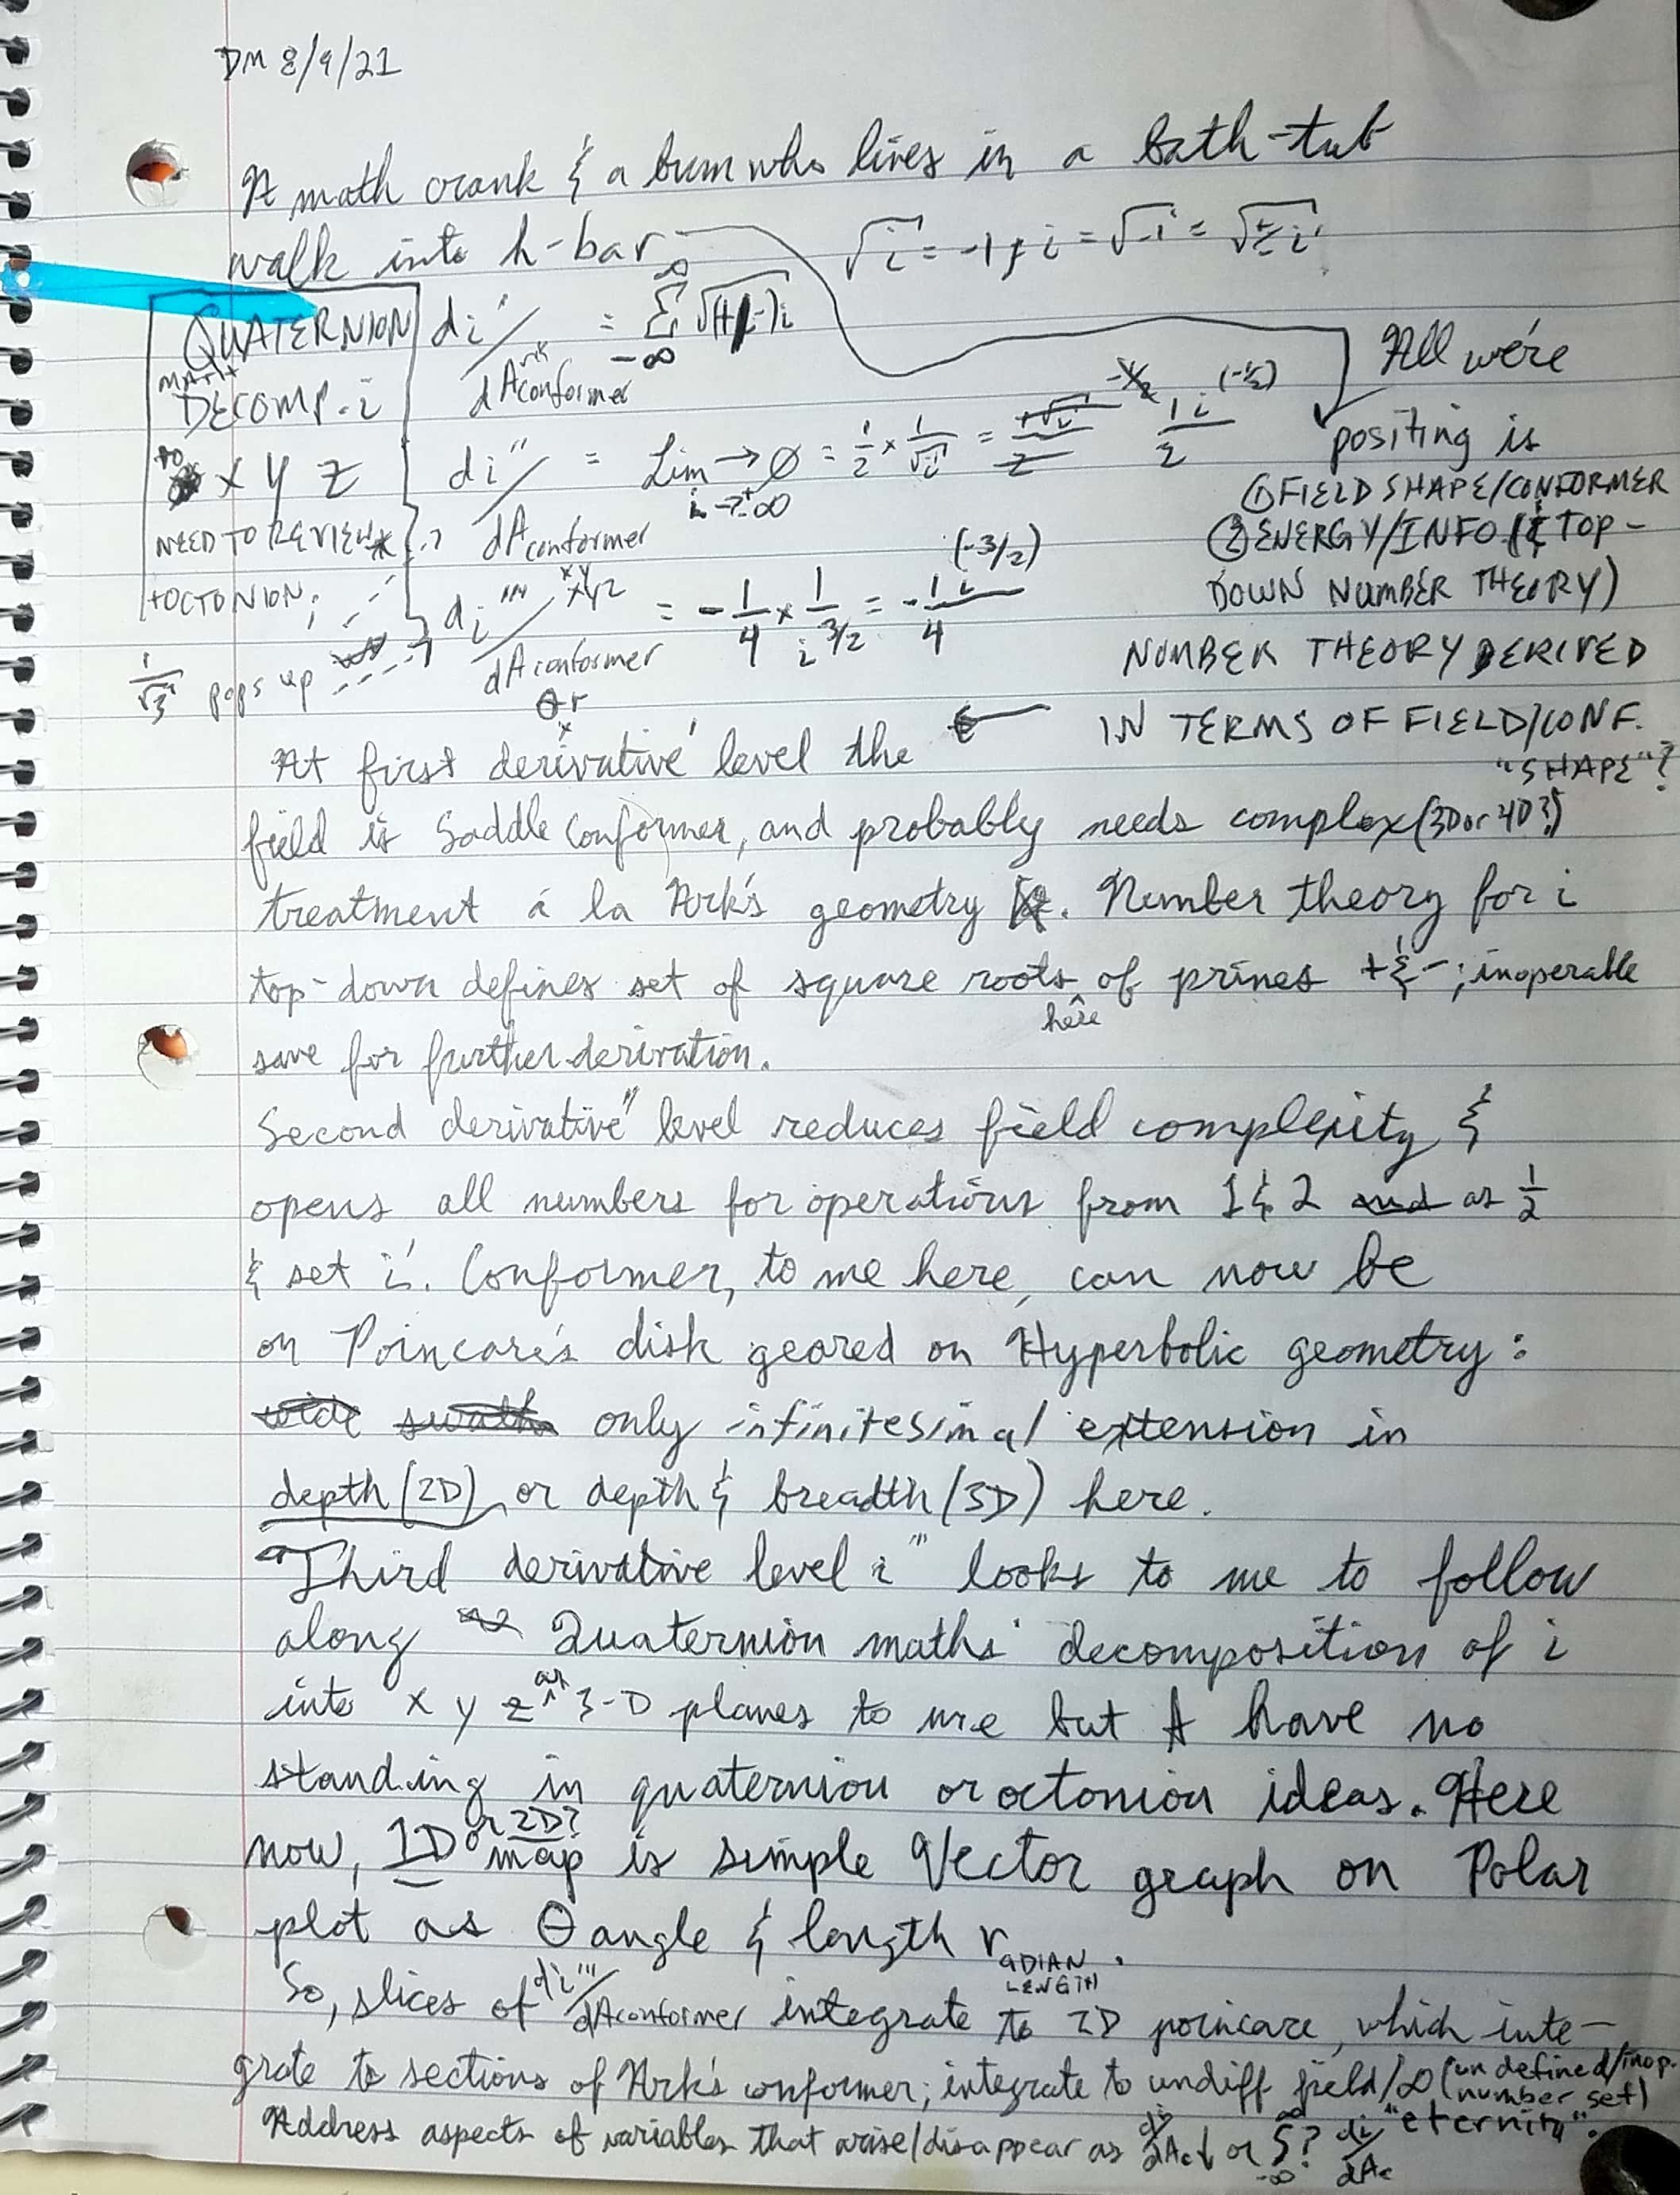 DM 8/9/21
A math crank & a bum who lives in a bath-tub
walk into h-bar
√i = -1 i = √-i = √± i
QUATERNION
MATH
DECOMP. i
to
X Y Z
NEED TO REVIEW
+OCTONION
1/√3 pops up
di' / dA conformer = ∞ Σ -∞ √(+/-)i
di'' / dA conformer = Lim i→±∞ → Ø = 1/2 × 1/√i = 1i (-1/2) / 2
di''' xyz / dA conformer θr = - 1/4 × 1/i 3/2 = - 1i (-3/2) / 4
All we're
positing is
① FIELD SHAPE/CONFORMER
② ENERGY/INFO (& TOP-
DOWN NUMBER THEORY)
NUMBER THEORY DERIVED
IN TERMS OF FIELD/CONF.
"SHAPE"?
At first derivative' level the
field is Saddle Conformer, and probably needs complex (3D or 4D?)
treatment á la Ark's geometry. Number theory for i
top-down defines set of square roots of primes + & -; inoperable
here
save for further derivation.
Second derivative'' level reduces field complexity &
opens all numbers for operations from 1 & 2 and as 1/2
& set i'. Conformer, to me here, can now be
on Poincare's disk geared on Hyperbolic geometry:
wide swath only infinitesimal extension in
depth (2D) or depth & breadth (3D) here.
Third derivative level i''' looks to me to follow
along Quaternion maths' decomposition of i
into x y z as 3-D planes to me but I have no
standing in quaternion or octonion ideas. Here
now, 1D or 2D? map is simple Vector graph on Polar
plot as θ angle & length r ADIAN LENGTH.
So, slices of di'''/dA conformer integrate to 2D poincare, which inte-
grate to sections of Ark's conformer; integrate to undiff field/∞ (undefined/inop.
number set)
Address aspects of variables that arise/disappear as di/dAc ↓ or ∞ ∫ -∞ ? di/dAc "eternity".